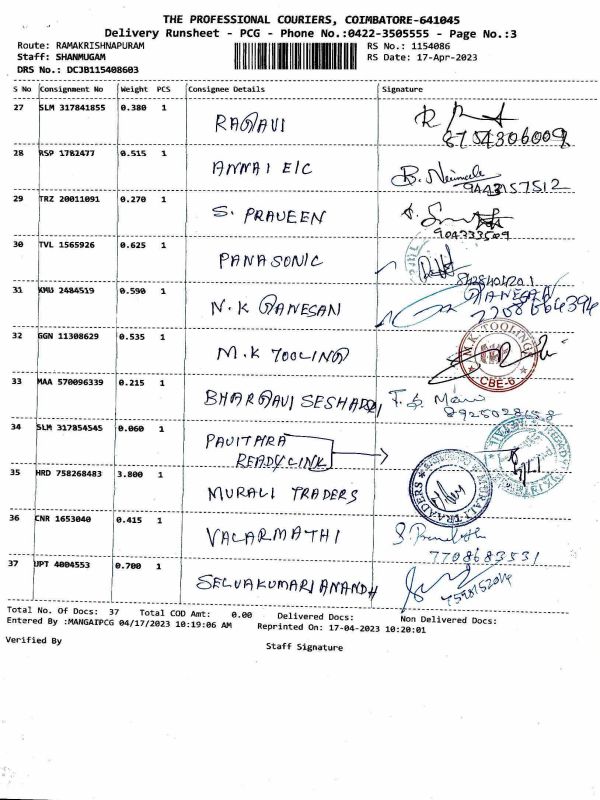 THE PROFESSIONAL COURIERS, COIMBATORE-641045
Delivery Runsheet - PCG - Phone No.:0422-3505555 - Page No.:3
Route: RAMAKRISHNAPURAM
RS No.: 1154086
Staff: SHANMUGAM
RS Date: 17-Apr-2023
DRS No.: DCJB115408603
S No Consignment No Weight PCS Consignee Details Signature
27 SLM 317841855 0.380 1 RAGAVI R
8704306009
28 RSP 1782477 0.515 1 ANNAI EIC B.
9443157512
29 TRZ 20011091 0.270 1 S. PRAVEEN
904333509
30 TVL 1565926 0.625 1 PANASONIC
31 KMU 2484519 0.590 1 N.K GANESAN GANESAN
7708664394
32 GGN 11308629 0.535 1 M.K TOOLING M.K TOOLING
CBE-6
33 MAA 570096339 0.215 1 BHARGAVI SESHADRI
8925028658
34 SLM 317854545 0.060 1 PAVITHRA
READYLINK
35 HRD 758268483 3.800 1 MURALI TRADERS MURALI TRAADERS
36 CNR 1653040 0.415 1 VALARMATHI
7708683531
37 UPT 4004553 0.700 1 SELVAKUMARI ANANDH
Total No. Of Docs: 37 Total COD Amt: 0.00 Delivered Docs: Non Delivered Docs:
Entered By :MANGAIPCG 04/17/2023 10:19:06 AM Reprinted On: 17-04-2023 10:20:01
Verified By
Staff Signature